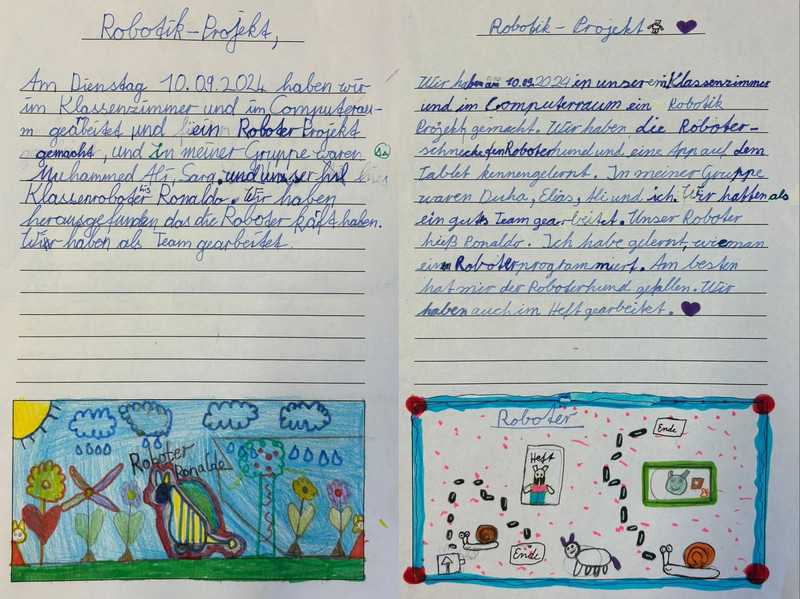 Robotik-Projekt,
Am Dienstag 10.09.2024 haben wir
im Klassenzimmer und im Computerau-
m gearbeitet und ein Roboter Projekt
gemacht, und in meiner Gruppe waren
Muhammed Ali, Sara, und unser
Klassenroboter Ronaldo. Wir haben
herausgefunden das die Roboter kraft haben.
Wir haben als Team gearbeitet.
Roboter
Ronaldo
Robotik-Projekt
Wir haben am 10.09.2024 in unserem Klassenzimmer
und im Computerraum ein Robotik
Projekt gemacht. Wir haben die Roboter-
schnecke den Roboterhund und eine App auf dem
Tablet kennengelernt. In meiner Gruppe
waren Duha, Elias, Ali und ich. Wir hatten als
ein gutes Team gearbeitet. Unser Roboter
hieß Ronaldo. Ich habe gelernt, wie man
ein Roboter programmiert. Am besten
hat mir der Roboterhund gefallen. Wir
haben auch im Heft gearbeitet.
Roboter
Ende
Heft
Ende